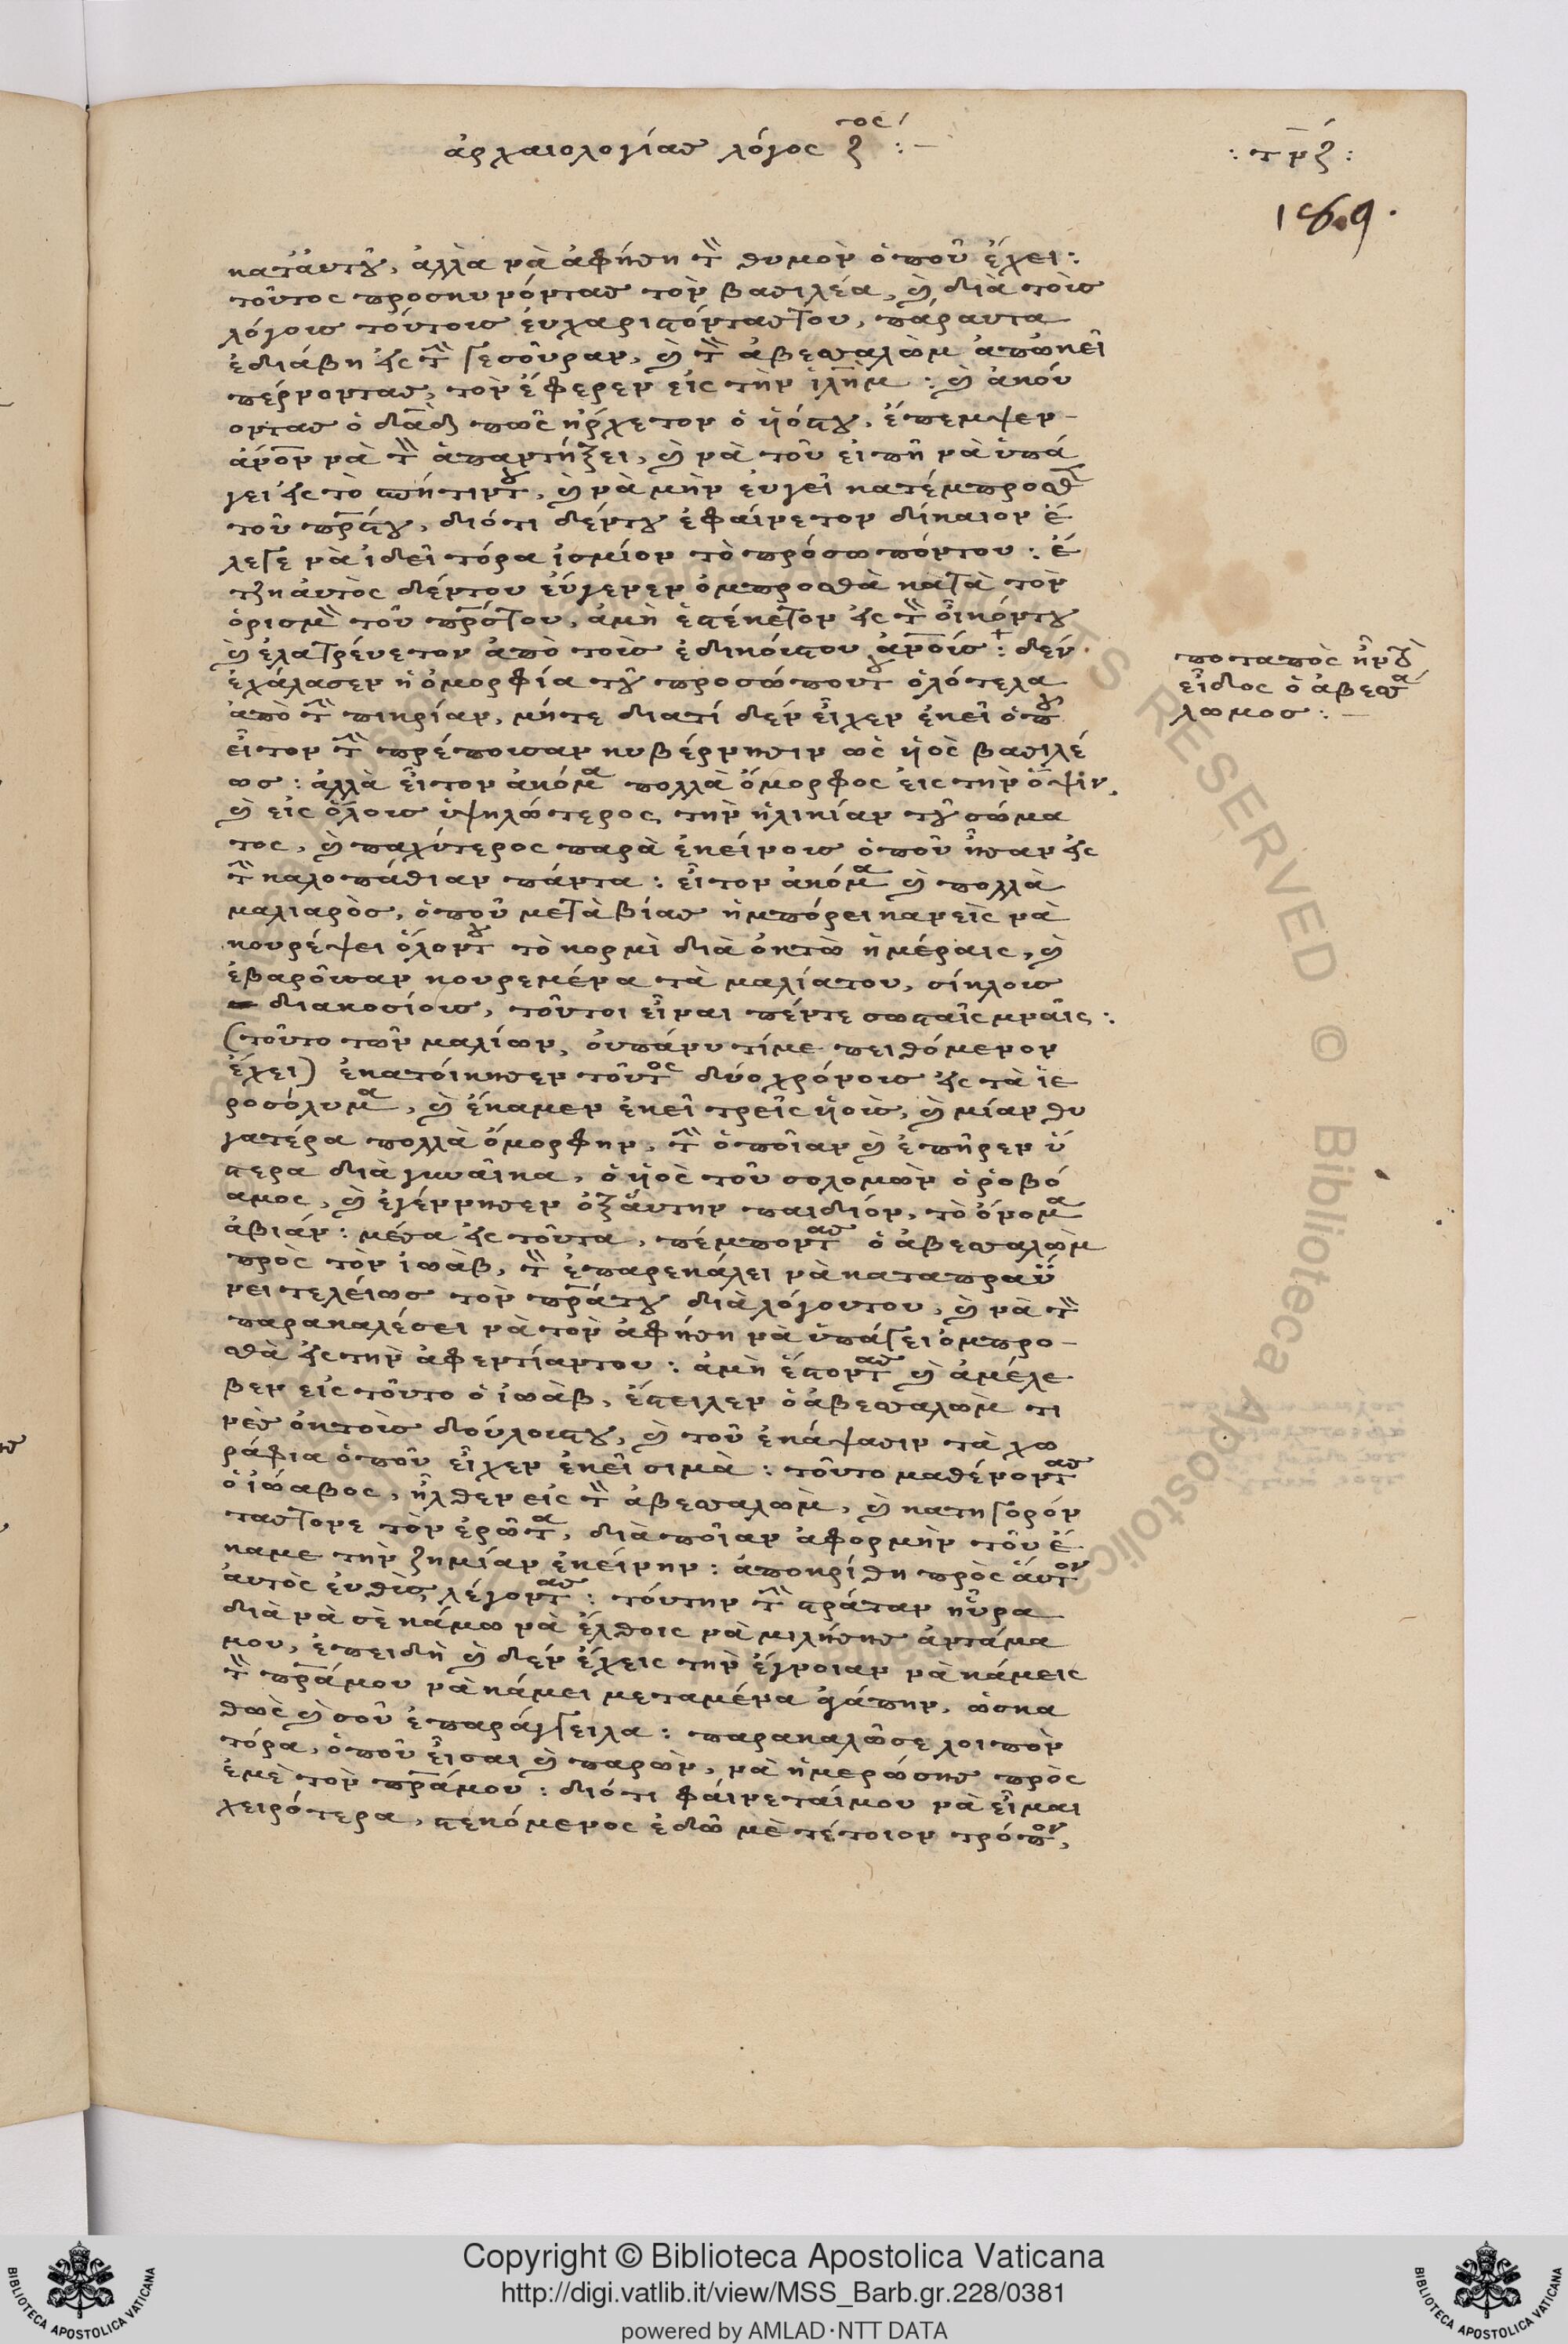 ἀρχαιολογίασ λόγος ζτος :—
: τνζ :
189.
κατἀυτοῦ, ἀλλὰ νὰ ἀφήσῃ τὸν θυμὸν ὁποῦ ἔχει :
τοῦτος προσκυνόντασ τὸν βασιλέα, καὶ διὰ τοὶσ
λόγοισ τούτοισ ἐυχαριστόντασ του, πάραυτα
ἐδιάβη εἰς τὴν γεσοῦραν, καὶ τὸν ἀβεσσαλὼμ ἀπῶκεῖ
πέρνοντασ, τὸν ἔφερεν εἰς τὴν ἰλῆμ : καὶ ἀκού
οντασ ὁ δᾱδ πῶς ἤρχετον ὁ ὑιόςτου, ἔπεμψεν
ἀνον νὰ τὸν ἀπαντήξει, καὶ νὰ τοῦ εἰπῆ νὰ ὑπά
γει εἰς τὸ σπήτιντου, καὶ νὰ μὴν ἐυγεῖ κατέμπροσθεν
τοῦ πρςτου, διότι δέντου ἐφαίνετον δίκαιον ἔ
λεγε νὰ ἰδεῖ τόρα ἰσμίον τὸ πρόσωπόντου : ἔ
τζη ἀυτὸς δέντου ἐύγενεν ὀμπροσθὰ κατὰ τὸν
ὁρισμὸν τοῦ πρστου, ἀμὴ ἐστέκετον εἰς τὸν οἰκόντου
καὶ ἐλατρέυετον ἀπὸ τοὶσ ἐδικόιστου ἀνοὶσ : δέν
ἐχάλασεν ἡ ὀμορφία τοῦ προσώπουτου ὁλότελα
ἀπὸ τὴν πικρίαν, μήτε διατί δέν εἶχεν ἐκεῖ ὁποῦ
εἶτον τὴν πρέποισαν κυβέρνησιν ὡς ὑιὸς βασιλέ
ωσ : ἀλλὰ εἶτον ἀκόμα πολλὰ ὄμορφος εἰς τὴν ὄψιν,
καὶ εἰς ὅλοισ ὑψηλώτερος τὴν ἡλικίαν τοῦ σώμα
τος, καὶ παχύτερος παρὰ ἐκείνοισ ὁποῦ ἦσαν εἰς
τὴν καλοπάθιαν πάντα : εἶτον ἀκόμα καὶ πολλὰ
μαλιαρὸσ, ὁποῦ μετὰ βίασ ἡμπόρει κανεὶς νὰ
κουρέψει ὅλοντου τὸ κορμὶ διὰ ὀκτὼ ἡμέραις, καὶ
ἐβαροῦσαν κουρεμένα τὰ μαλίατου, σίκλοισ
διακοσίοισ, τοῦτοι εἶναι πέντε σωσταῖς μναῖς :
(τοῦτο τῶν μαλίων, ὀυπάνυ τίμε πειθόμενον
ἔχει) ἐκατόικησεν τοῦτος δύο χρόνοισ εἰς τὰ ἱε
ροσόλυμα, καὶ ἔκαμεν ἐκεῖ τρεῖς ὑιοὶσ, καὶ μίαν θυ
γατέρα πολλὰ ὄμορφην, τὴν ὁποῖαν καὶ ἐπῆρεν ὕ
στερα διὰ γυναῖκα, ὁ ὑιὸς τοῦ σολομὼν ὁ ροβό
αμος, καὶ ἐγέννησεν ὀξἀύτην παιδιόν, τὸ ὄνομα
ἀβιάν : μέσα εἰς τοῦτα, πέμποντασ ὁ ἀβεσσαλὼμ
πρὸς τὸν ἰωὰβ, τὸν ἐπαρεκάλει νὰ καταπραΰ
νει τελείωσ τὸν πράτου διὰ λόγουτου, καὶ νὰ τὸν
παρακαλέσει νὰ τὸν ἀφήσῃ νὰ ὑπάγει ὀμπρο
σθὰ εἰς τὴν ἀφεντίαντου : ἀμὴ ἔστοντασ καὶ ἀμέλε
βεν εἰς τοῦτο ὁ ἰωὰβ, ἔστειλεν ὁ ἀβεσσαλὼμ τι
νὲσ ὀκτοὶσ δούλοιστου, καὶ τοῦ ἐκάψασιν τὰ χω
ράφια ὁποῦ εἶχεν ἐκεῖ σιμὰ : τοῦτο μαθένοντασ
ὁ ἰώαβος, ἦλθεν εἰς τὸν ἀβεσσαλὼμ, καὶ κατηγορόν
τασ τονε τὸν ἐρώτα, διὰ ποῖαν ἀφορμὴν τοῦ ἔ
καμε τὴν ζημίαν ἐκείνην : ἀποκρίθη πρὸς ἀυτὸν
ἀυτὸς ἐυθὶσ, λέγοντασ : τόυτην τὴν στράταν ηὗρα
διὰ νὰ σὲ κάμω νὰ ἔλθοις νὰ μιλήσησ ἀντάμα
μου, ἐπειδὴ καὶ δέν ἔχεις τὴν ἔγνοιαν νὰ κάμεις
τὸν πράμου νὰ κάμει μεταμένα ἀγάπην, ὡσκα
θὼς καὶ σοῦ ἐπαράγγειλα : παρακαλῶσε λοιπὸν
τόρα, ὁποῦ εἶσαι καὶ παρὼν, νὰ ἡμερώσησ πρὸς
ἐμὲ τὸν πράμου : διότι φάινεταίμου νὰ εἶμαι
χειρότερα, στεκόμενος ἐδῶ μὲ τέτοιον τρόπον,
ποταπὸς ἦν τὸ
εἶδος ὁ ἀβεσσά
λωμοσ :—
Copyright © Biblioteca Apostolica Vaticana
http://digi.vatlib.it/view/MSS_Barb.gr.228/0381
powered by AMLAD·NTT DATA
BIBLIOTECA APOSTOLICA VATICANA
BIBLIOTECA APOSTOLICA VATICANA